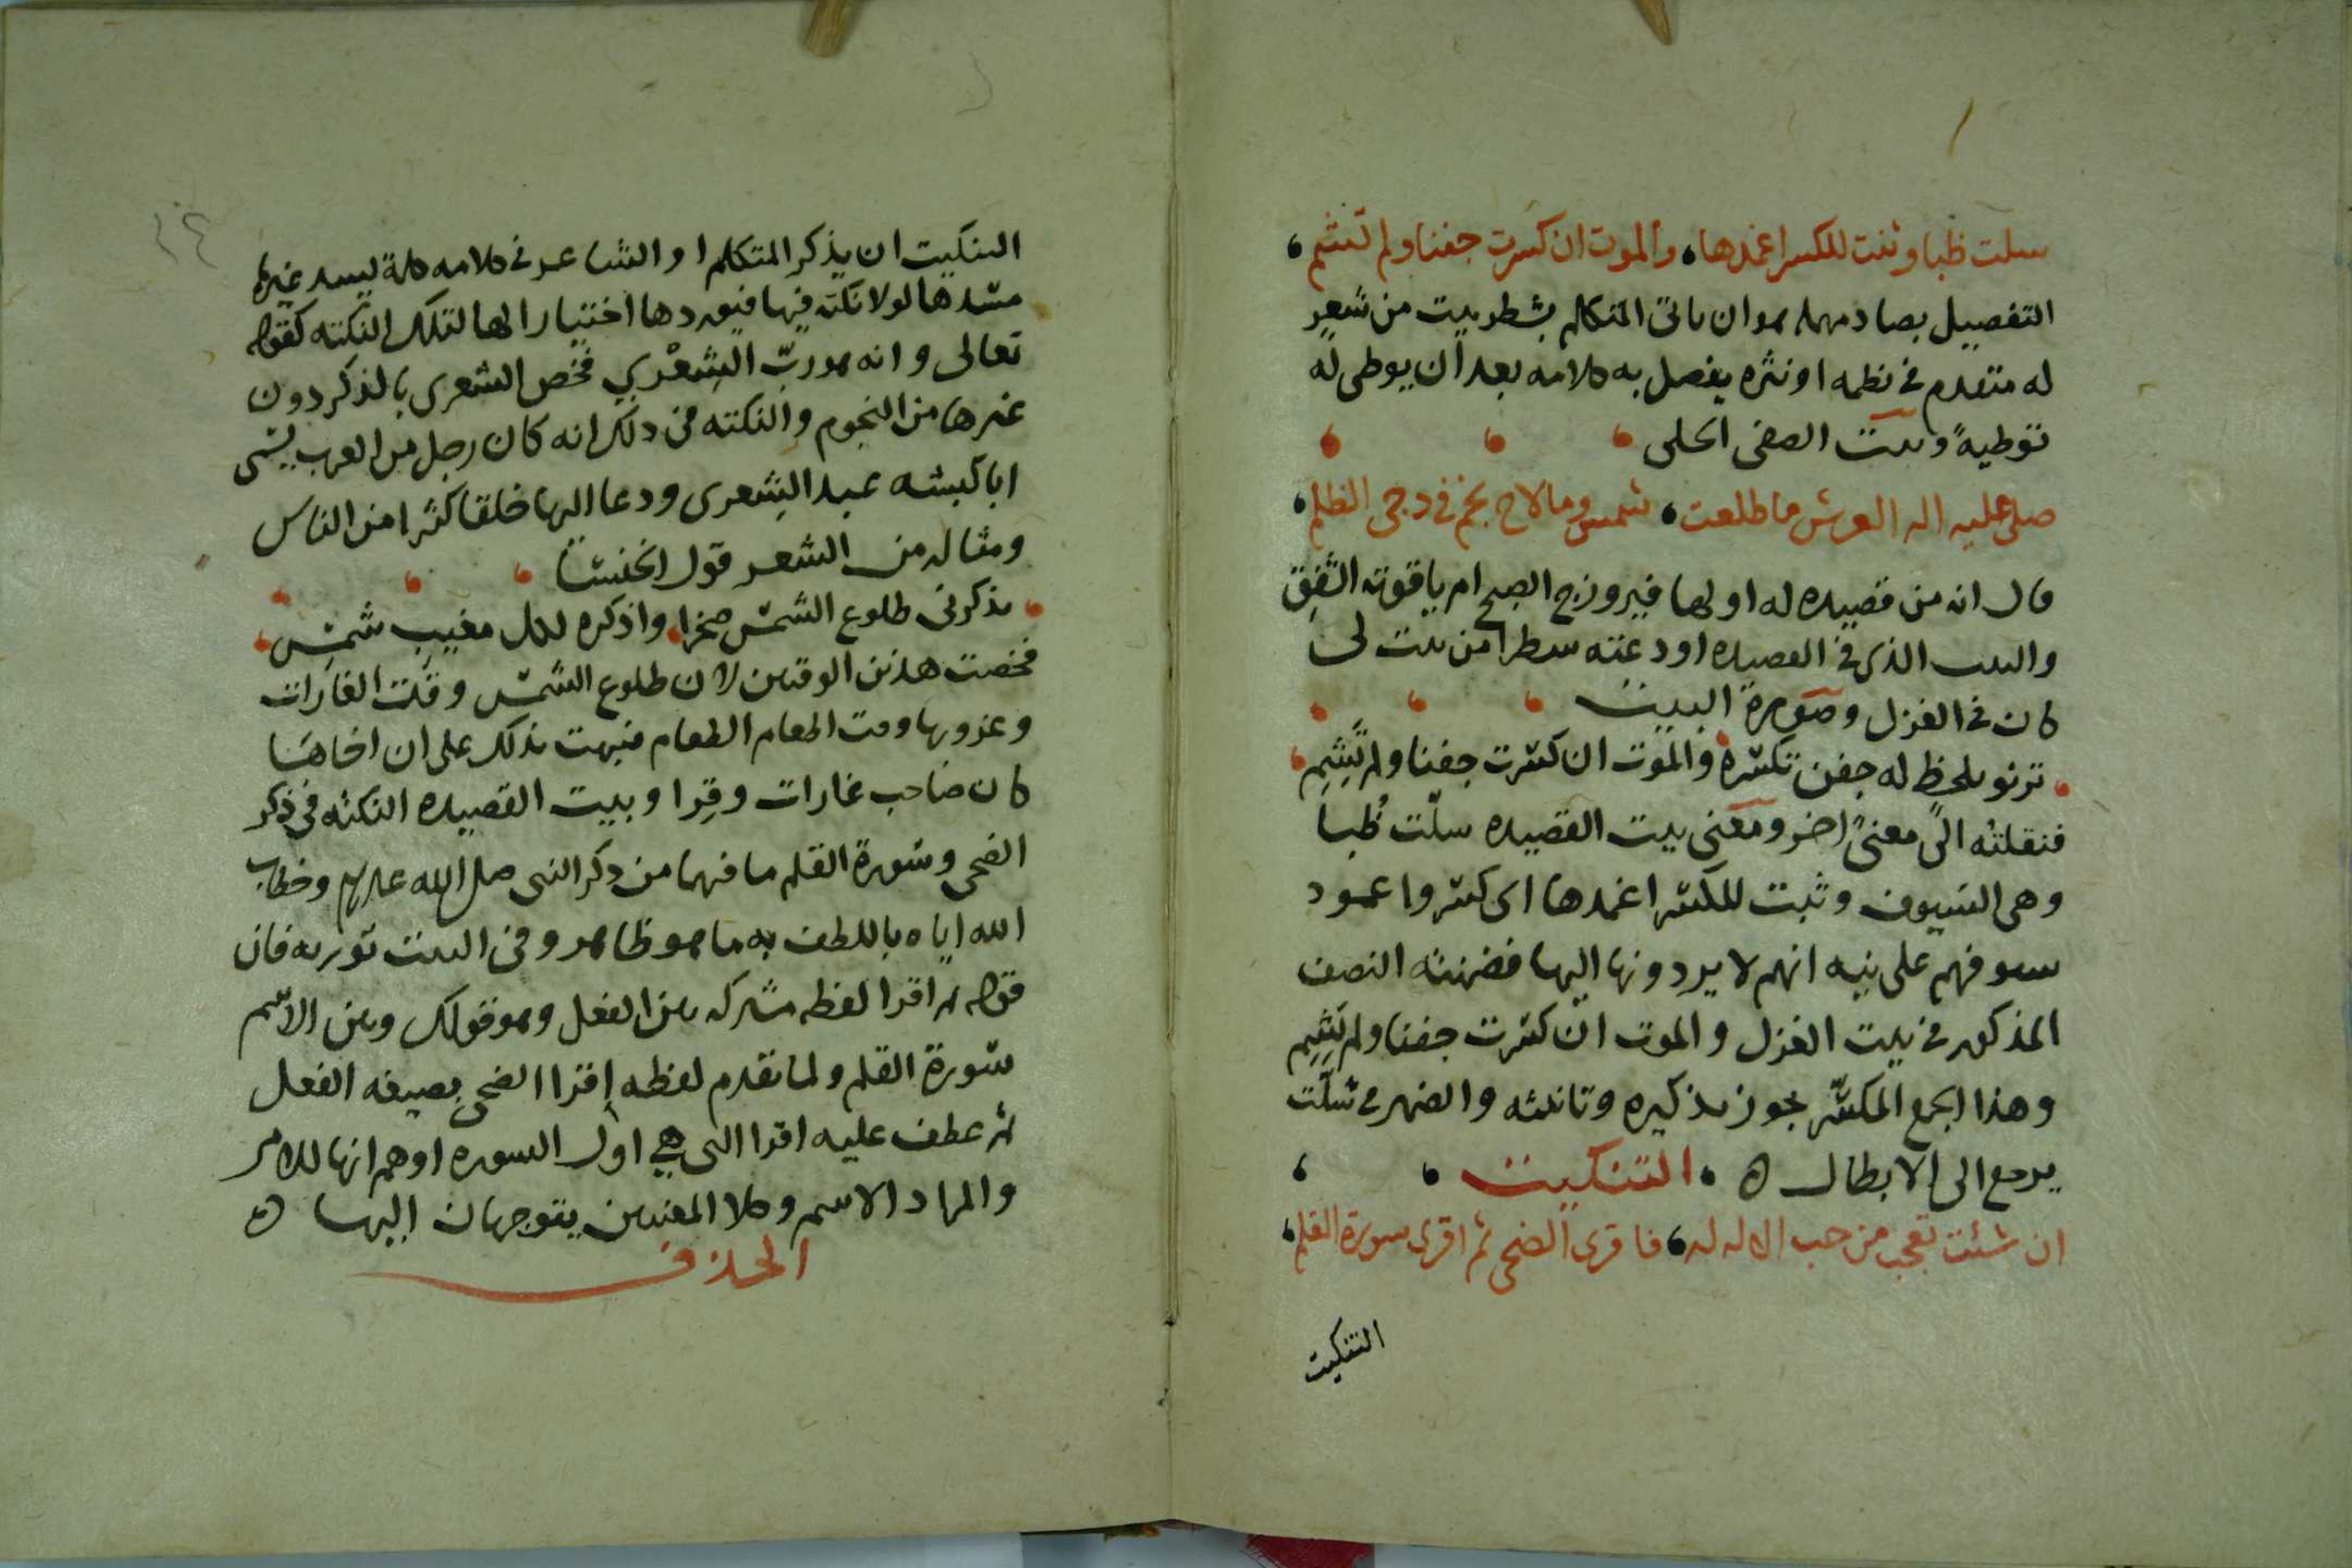 سلت ظبا وثنت للكسر اغمدها، والموت ان كسرت جفنا ولم تشم،
التفصيل بصاد مهمله هو ان ياتى المتكلم بشطر بيت من شعرٍ
له متقدم فى نظمه او نثره يفصل به كلامه بعد ان يوطى له
توطيةً وبيت الصفى الحلى
صلى عليه اله العرش ما طلعت، شمس وما لاح نجم فى دجى الظلم،
قال انه من قصيده له اولها فيروزج الصبح ام ياقوته الشفق
والبيت الذى فى القصيده اودعته شطرا من بيت لى
كان فى الغزل وصورة البيت
ترنو بلحظٍ له جفن تكسّره والموت ان كسّرت جفنا ولم تَشِمِ
فنقلته الى معنىً اخر ومعنى بيت القصيده سلّت ظُبا
وهى السيوف وثبت للكسر اغمدها اى كسروا غمود
سيوفهم على نيه انهم لا يردونها اليها فضمنته النصف
المذكور فى بيت الغزل والموت ان كسّرت جفنا ولم تَشِمِ
وهذا الجمع المكسّر يجوز تذكيره وتانيثه والضمير فى سلّت
يرجع الى الابطال ه التنكيت
ان شئت تعجب من حب الاله له، فاقرى الضحى ثم اقرى سورة القلم،
التنكيت
١٤
التنكيت ان يذكر المتكلم او الشاعر فى كلامه كلمة يسد غيرها
مسدها لولا نكته فيها فيوردها اختيارا لها لتلك النكته كقوله
تعالى وانه هو ربّ الشِعْرى فخص الشعرى بالذكر دون
غيرها من النجوم والنكته فى ذلك انه كان رجل من العرب يسمى
ابا كبشه عبد الشعرى ودعا اليها خلقا كثيرا من الناس
ومثاله من الشعر قول الخنسا
يذكرنى طلوع الشمس صخرا، واذكره لكل مغيب شمسِ،
فخصت هذين الوقتين لان طلوع الشمس وقت الغارات
وغروبها وقت اطعام الطعام فنبهت بذلك على ان اخاها
كان صاحب غارات وقِرا وبيت القصيده النكته فى ذكر
الضحى وسورة القلم ما فيهما من ذكر النبى صلى الله عليه وسلم وخطاب
الله اياه باللطف به ما هو ظاهر وفى البيت توريه فان
قوله ثم اقرا لفظه مشتركه بين الفعل وهو قولك وبين الاسم
سورة القلم ولما تقدم لفظه اقرا الضحى بصيغه الفعل
ثم عطف عليه اقرا التى هي اول السوره اوهم انها للامر
والمراد الاسم وكلا المعنيين يتوجهان اليها ه
الحذف